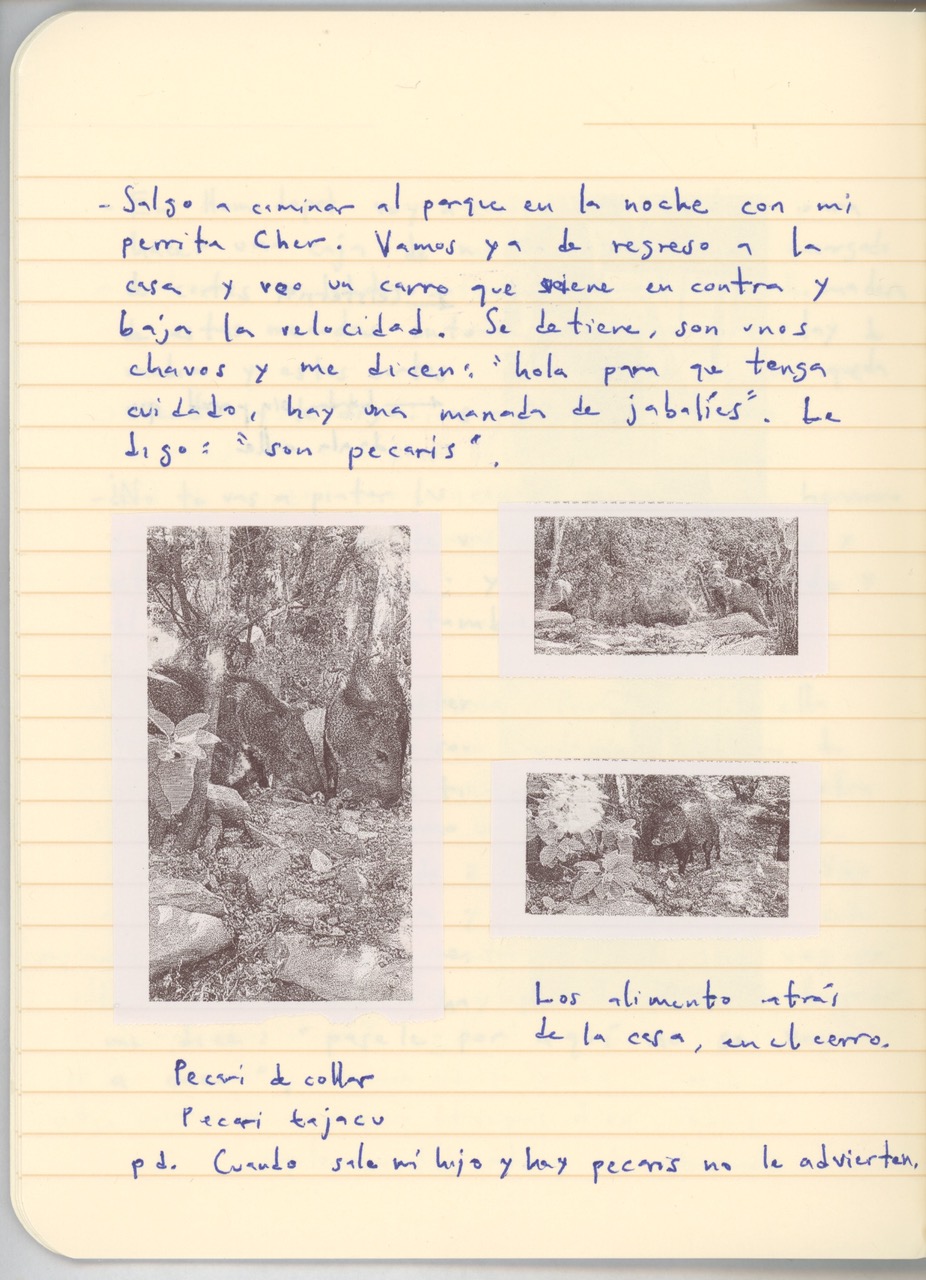 - Salgo a caminar al parque en la noche con mi
perrita Cher. Vamos ya de regreso a la
casa y veo un carro que viene en contra y
baja la velocidad. Se detiene, son unos
chavos y me dicen: "hola para que tenga
cuidado, hay una manada de jabalíes". Le
digo: "son pecaris".
Los alimento atrás
de la casa, en el cerro.
Pecarí de collar
Pecari tajacu
pd. Cuando sale mi hijo y hay pecaris no le advierten.